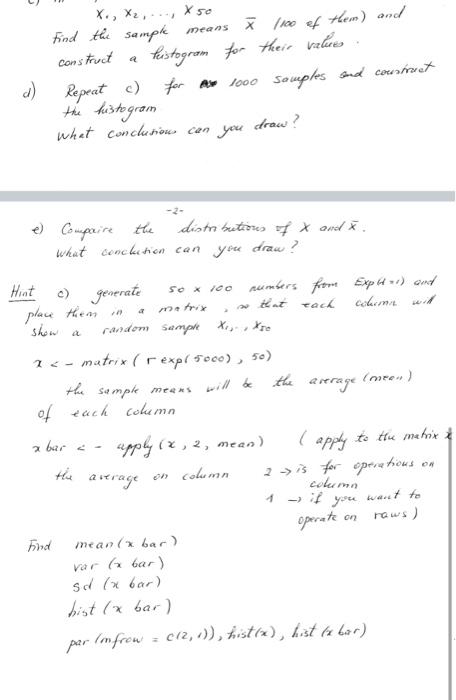 X1, X2, ..., X50
Find the sample means x̄ (100 of them) and
construct a histogram for their values.
d) Repeat c) for 1000 samples and construct
the histogram
What conclusions can you draw?
-2-
e) Compaire the distributions of X and x̄.
What conclusion can you draw?
Hint c) generate 50 x 100 numbers from Exp(λ=1) and
place them in a matrix, so that each column will
show a random sample X1,..., X50
x <- matrix (rexp(5000), 50)
the sample means will be the average (mean)
of each column
x bar <- apply (x, 2, mean) ( apply to the matrix x
the average on column 2 → is for operations on
column
1 → if you want to
operate on raws)
Find mean (x bar)
var (x bar)
sd (x bar)
hist (x bar)
par (mfrow = c(2,1)), hist(x), hist (x bar)